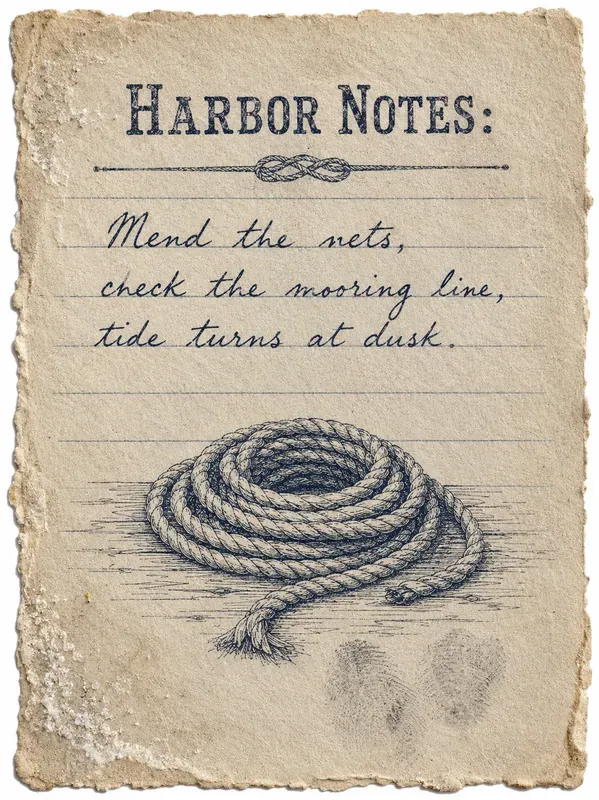 HARBOR NOTES:
Mend the nets,
check the mooring line,
tide turns at dusk.